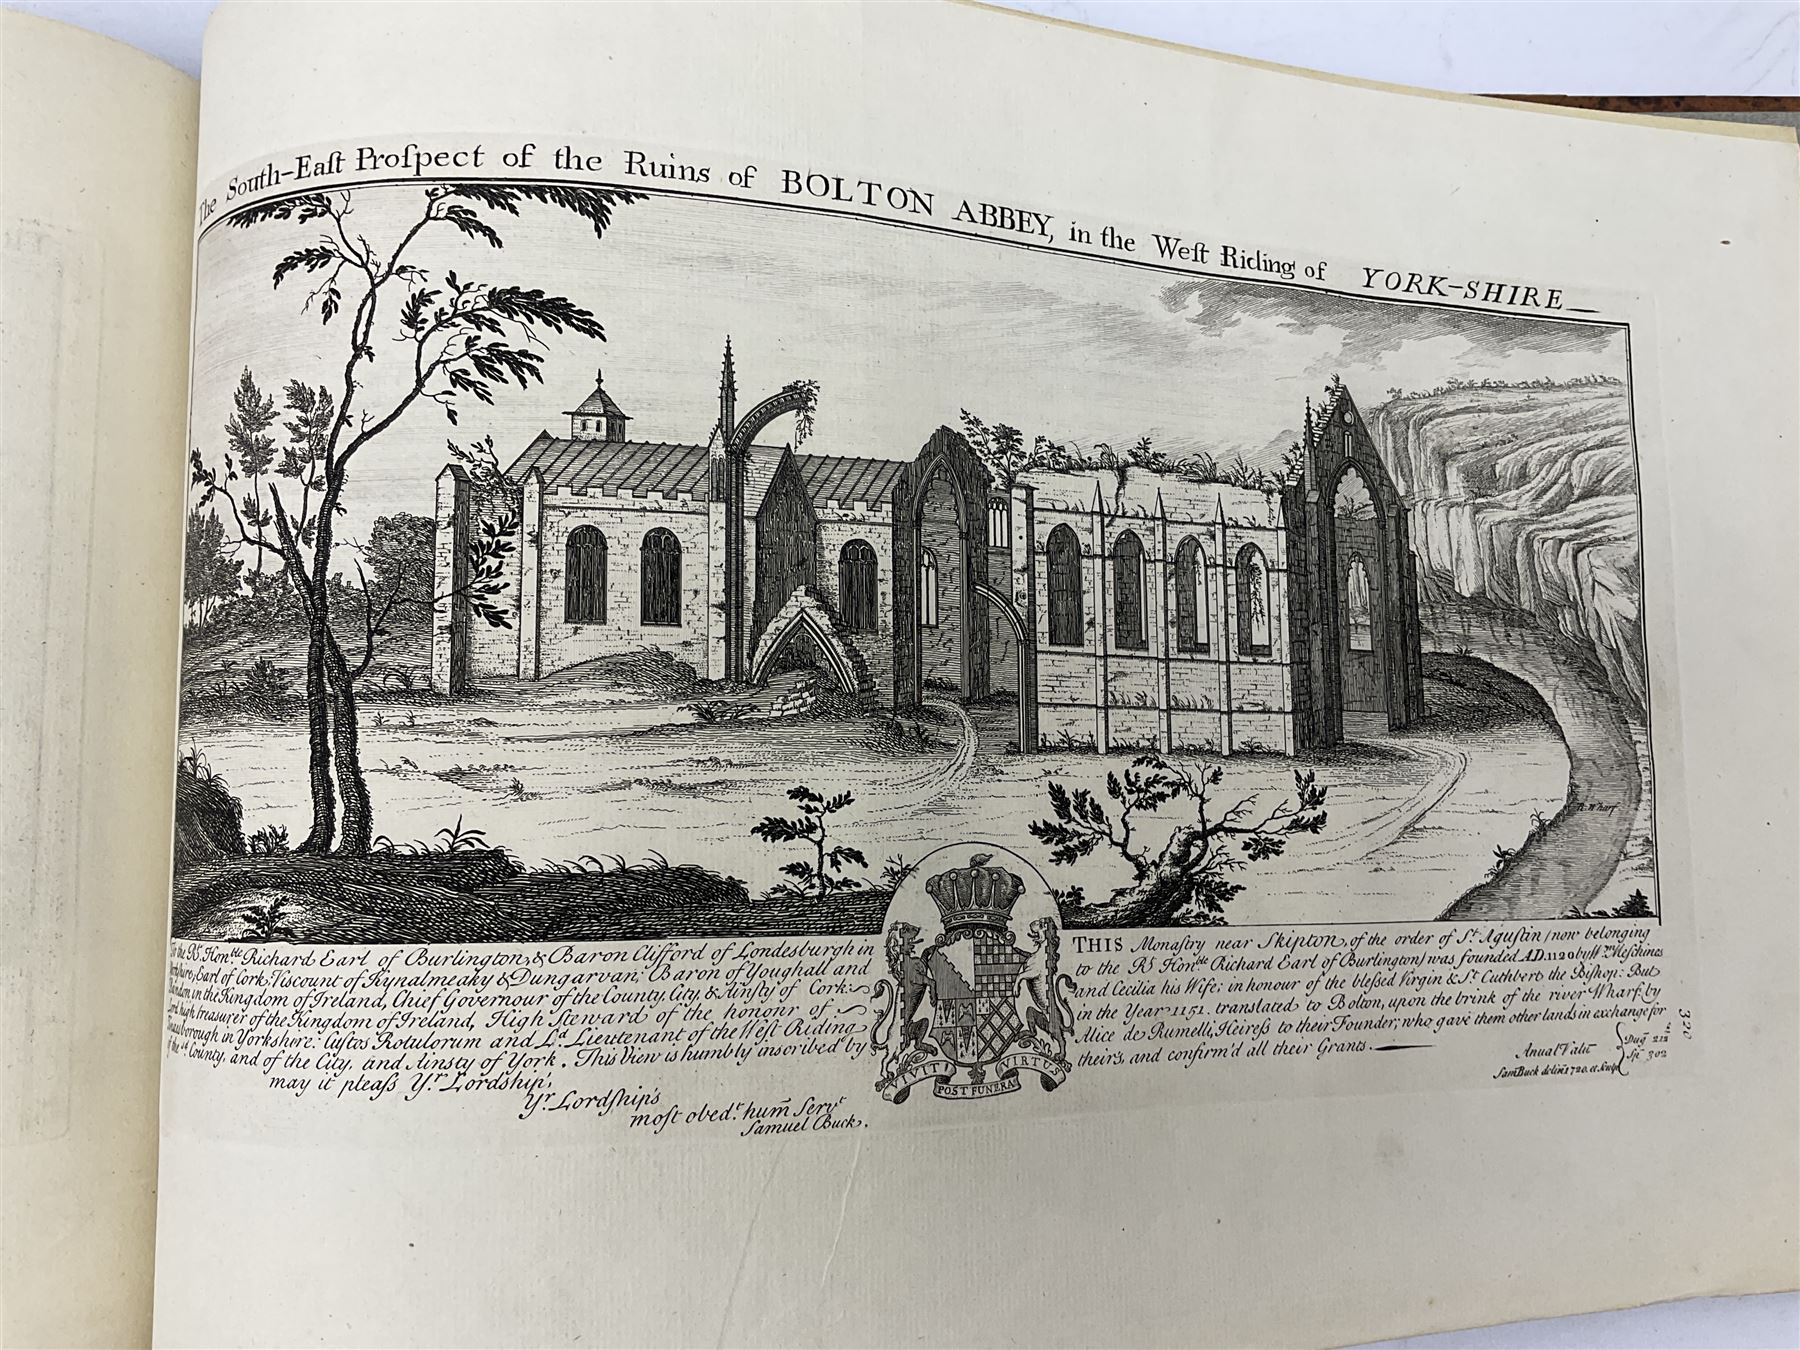 The South-Eaſt Proſpect of the Ruins of BOLTON ABBEY, in the Weſt Riding of YORK-SHIRE
R. Wharf
To the Rt. Honble Richard Earl of Burlington, & Baron Clifford of Londesburgh in
Yorkshire; Earl of Cork; Viscount of Kynalmeaky & Dungarvan; Baron of Youghall and
Bandon in the Kingdom of Ireland, Chief Governour of the County, City, & Ainsty of Cork:
Lord high treasurer of the Kingdom of Ireland, High Steward of the honour of
Knaesborough in Yorkshire: Custos Rotulorum and Ld. Lieutenant of the West Riding
of the sd. County, and of the City, and Ainsty of York. This View is humbly inscribed by
may it pleaſs Yr. Lordship,
Yr. Lordſhip's
moſt obedt. hum̄ Servt.
Samuel Buck.
VIVIT POST FUNERA VIRTUS
THIS Monaſtry near Skipton, of the order of St. Aguſtin (now belonging
to the Rt. Honble. Richard Earl of Burlington) was founded A.D. 1120 by Wm. Meſchines
and Cecilia his Wife; in honour of the bleſsed Virgin & St. Cuthbert the Bishop: But
in the Year 1151. translated to Bolton, upon the brink of the river Wharf; by
Alice de Rumelli, Heireſs to their Founder; who gave them other lands in exchange for
their's, and confirm'd all their Grants.
Anual Valu
Dug. 212
Sp. 302
Sam. Buck delin: 1720. et Sculp
320